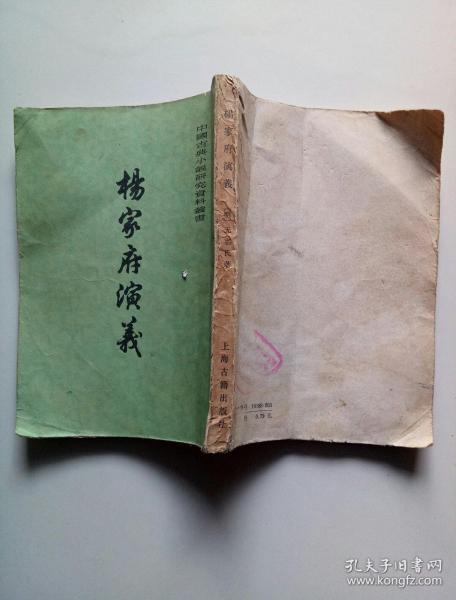 中國古典小說研究資料叢書
楊家府演義
楊家府演義
上海古籍出版社
孔夫子旧书网
www.kongfz.com